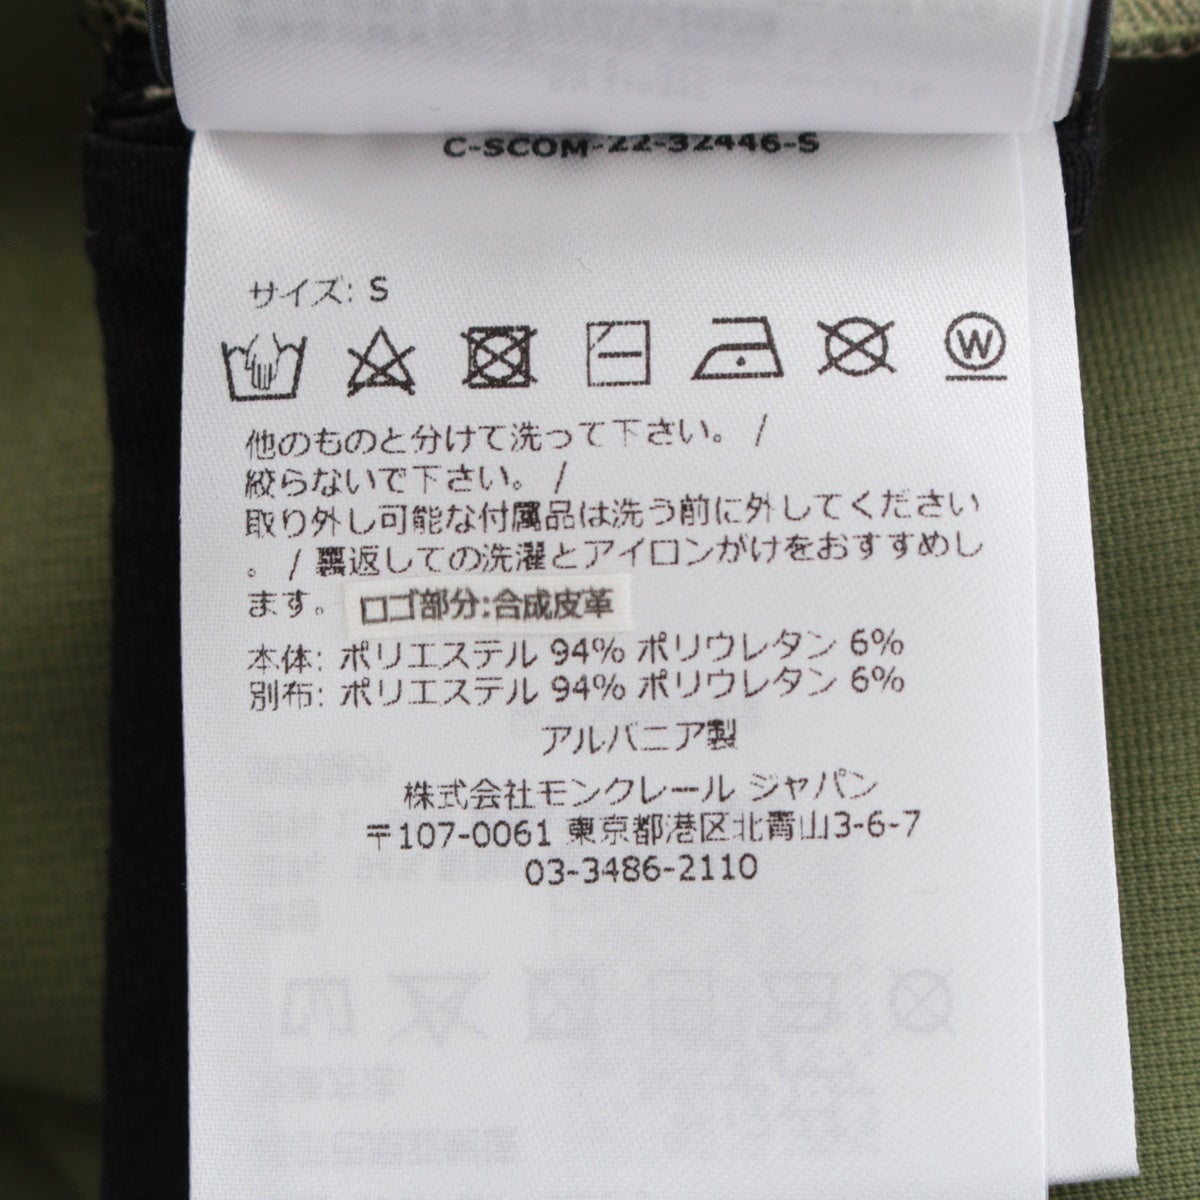 C-SCOM-22-32446-S
サイズ: S
W
他のものと分けて洗って下さい。 /
絞らないで下さい。 /
取り外し可能な付属品は洗う前に外してください
。 / 裏返しての洗濯とアイロンがけをおすすめし
ます。 ロゴ部分:合成皮革
本体: ポリエステル 94% ポリウレタン 6%
別布: ポリエステル 94% ポリウレタン 6%
アルバニア製
株式会社モンクレール ジャパン
〒107-0061 東京都港区北青山3-6-7
03-3486-2110